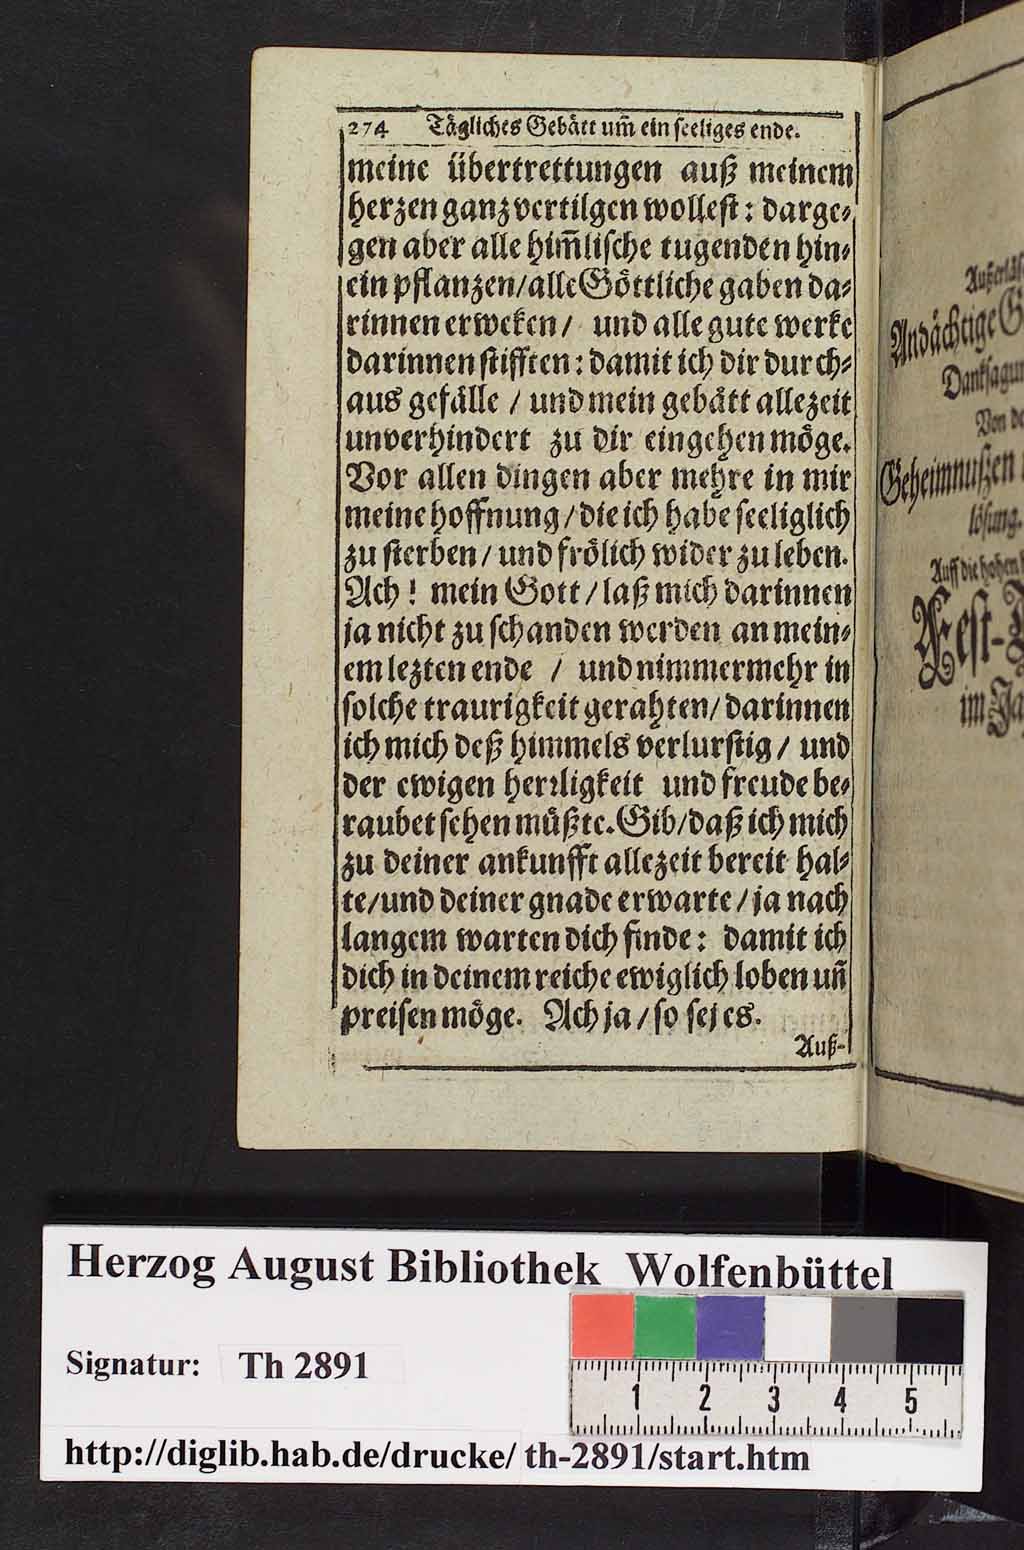 274 Tägliches Gebätt um̃ ein seeliges ende.
meine übertrettungen auß meinem
herzen ganz vertilgen wollest: darge-
gen aber alle him̃lische tugenden hin-
ein pflanzen/ alle Göttliche gaben da-
rinnen erweken/ und alle gute werke
darinnen stifften: damit ich dir durch-
aus gefälle / und mein gebätt allezeit
unverhindert zu dir eingehen möge.
Vor allen dingen aber mehre in mir
meine hoffnung/ die ich habe seeliglich
zu sterben/ und frölich wider zu leben.
Ach! mein Gott/ laß mich darinnen
ja nicht zu schanden werden an mein-
em lezten ende / und nimmermehr in
solche traurigkeit gerahten/ darinnen
ich mich deß himmels verlurstig/ und
der ewigen herrligkeit und freude be-
raubet sehen müßte. Gib/ daß ich mich
zu deiner ankunfft allezeit bereit hal-
te/ und deiner gnade erwarte/ ja nach
langem warten dich finde: damit ich
dich in deinem reiche ewiglich loben uñ
preisen möge. Ach ja/ so sej es.
Auß-
Andächtige
Von
Geheimnußen
lösung.
Auff die hohen
Fest-
im
Herzog August Bibliothek Wolfenbüttel
Signatur: Th 2891
1 2 3 4 5
http://diglib.hab.de/drucke/ th-2891/start.htm